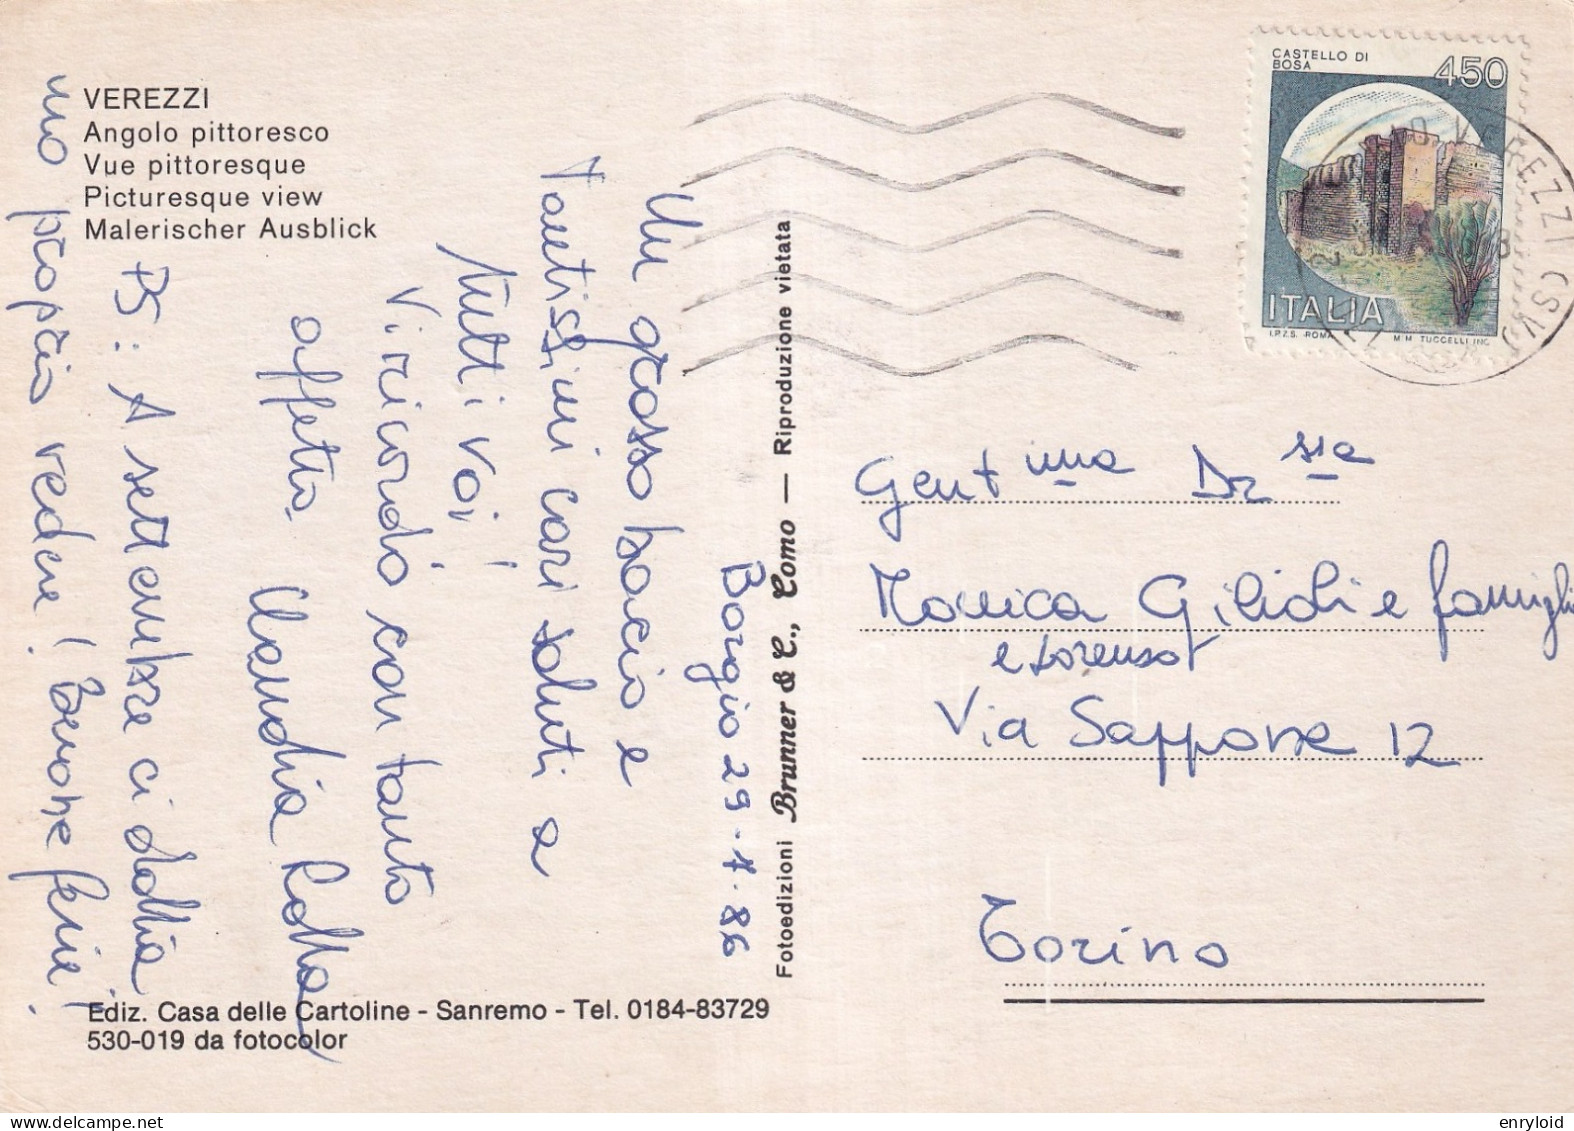 VEREZZI
Angolo pittoresco
Vue pittoresque
Picturesque view
Malerischer Ausblick
Borgio 29-7-86
Un grosso bacio e
Tantissimi cari saluti a
tutti voi!
Vi ricordo con tanto
affetto.
Claudia
PS: A settembre ci dobbia
mo proprio vedere! Buone ferie!
Ediz. Casa delle Cartoline - Sanremo - Tel. 0184-83729
530-019 da fotocolor
Fotoedizioni Brunner & C., Como — Riproduzione vietata
CASTELLO DI
BOSA
450
ITALIA
I.P.Z.S. ROMA
M.M. TUCCELLI INC.
VEREZZI (SV)
Gent ma Dr ssa
Monica Gilioli e famigli
e Lorenzo
Via Sappone 12
Torino
enryloid